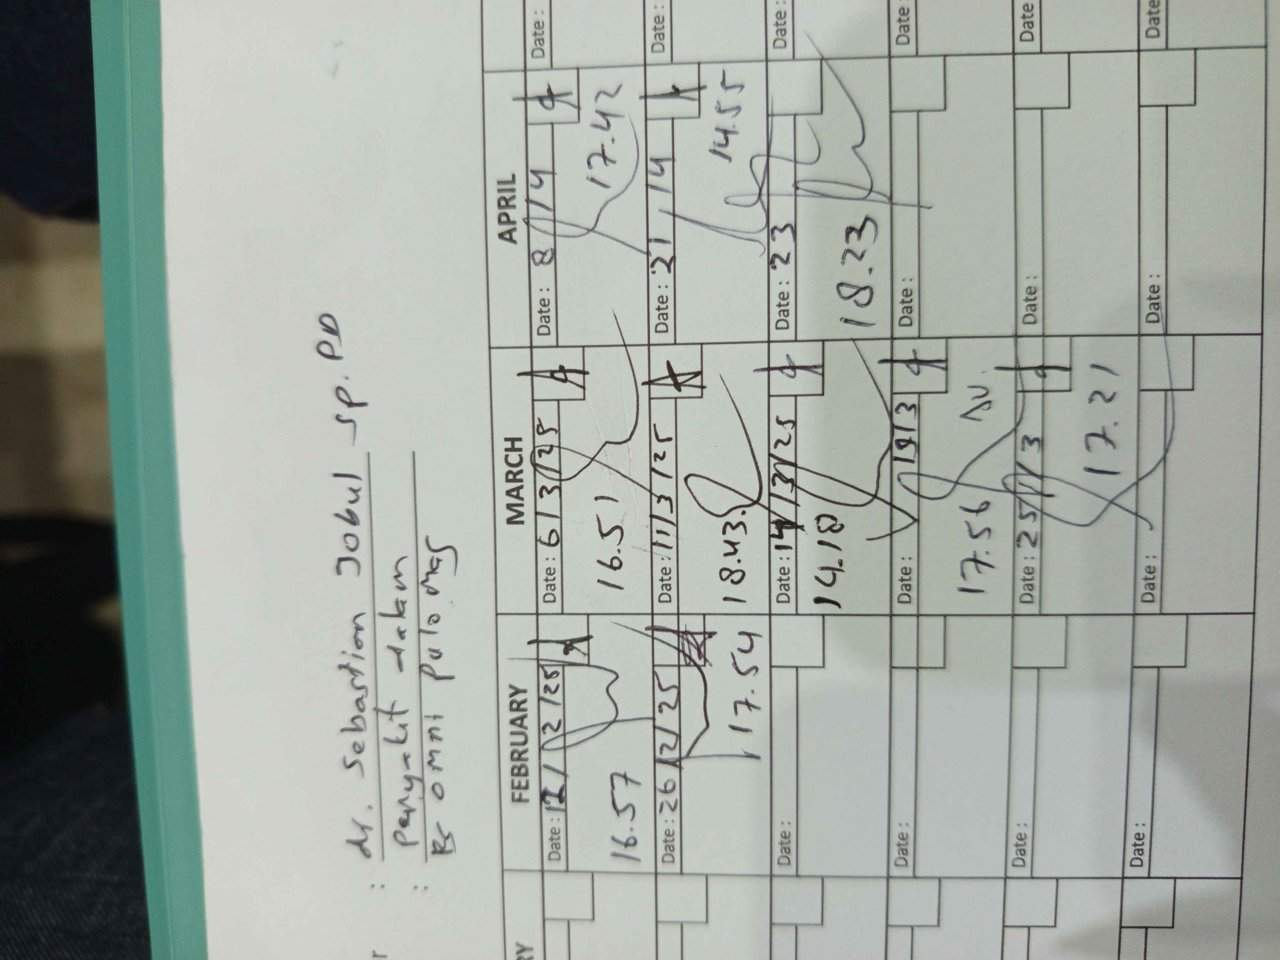 : dr. Sebastian Jobul Sp. PD
penyakit dalam
: RS omni pulo mas
FEBRUARY MARCH APRIL
Date : 12/2/25 Date : 6/3/25 Date : 8/4
16.57 16.51 17.42
Date : 26/2/25 Date : 11/3/25 Date : 21/4
17.54 18.43. 14.55
Date : Date : 14/3/25 Date : 23
14.18 18.23
Date : Date : 19/3 Date :
17.56
Date : Date : 25/3 Date :
17.21
Date : Date : Date :
Date :
Date :
Date :
Date :
Date :
Date :